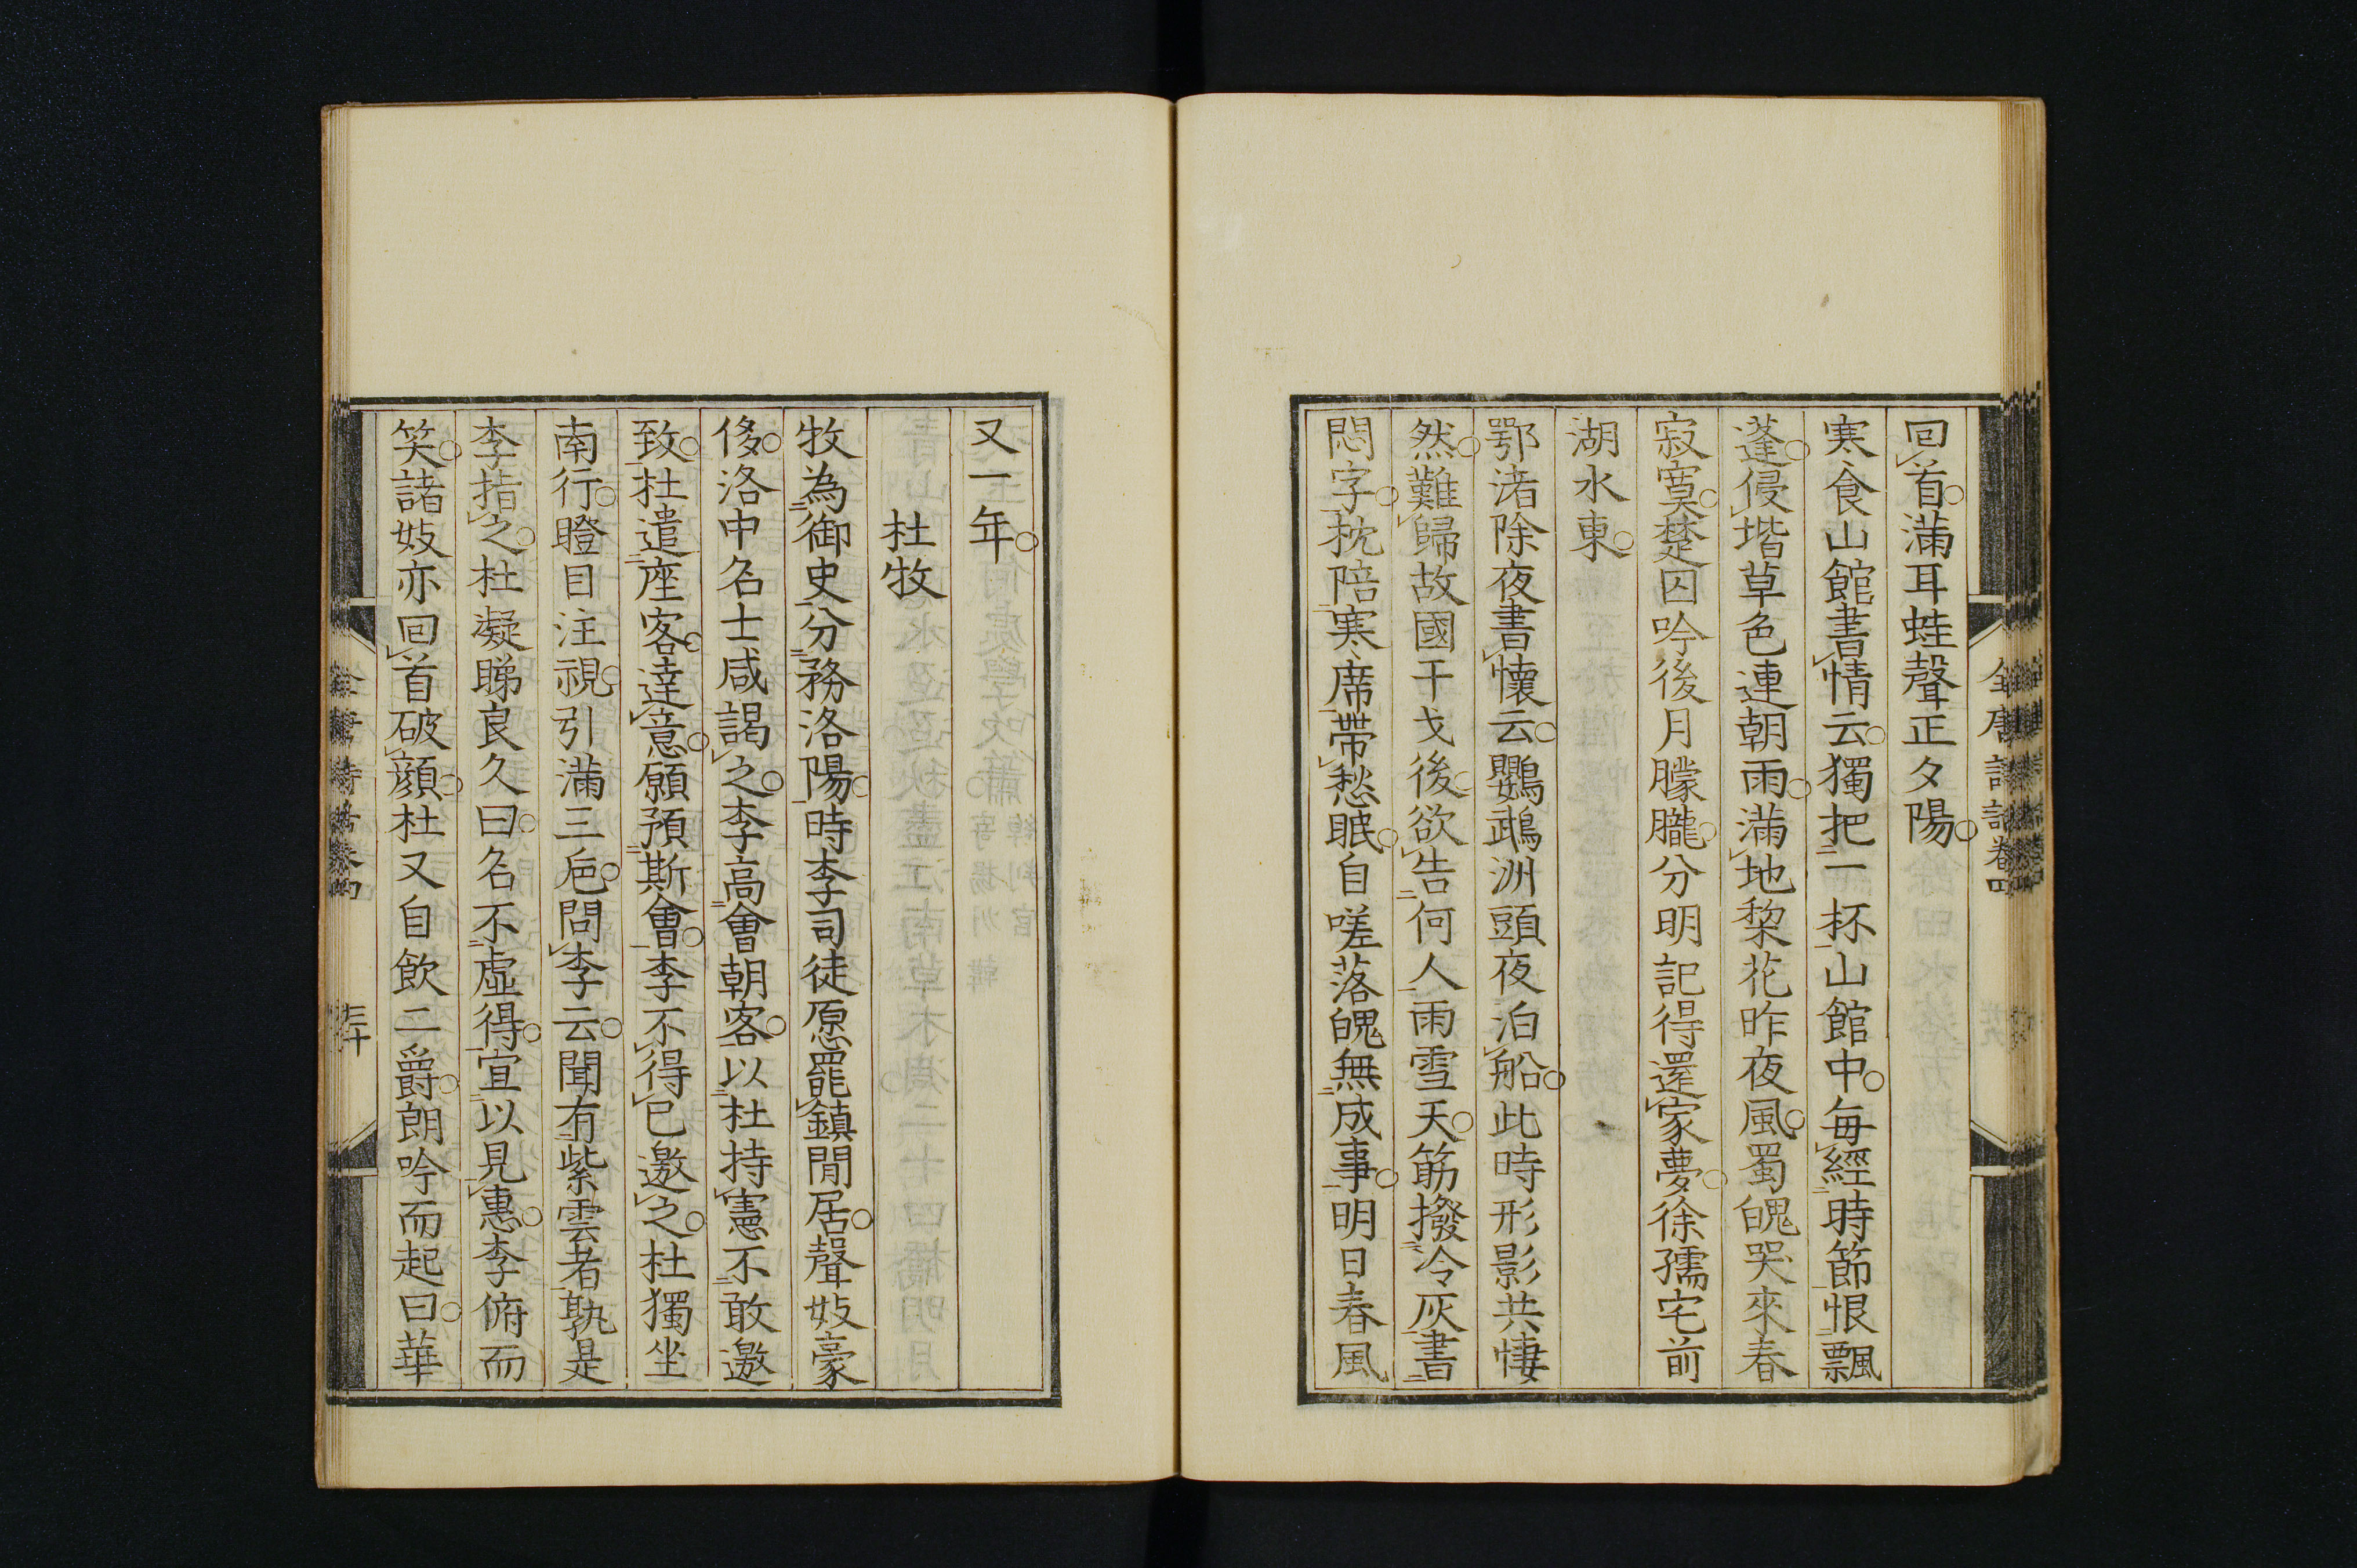 回首滿耳蛙聲正夕陽
寒食山館書情云獨把一杯山館中每經時節恨飄
蓬侵堦草色連朝雨滿地梨花昨夜風蜀魄哭來春
寂寞楚囚吟後月朦朧分明記得還家夢徐孺宅前
湖水東
鄂渚除夜書懷云鸚鵡洲頭夜泊船此時形影共悽
然難歸故國干戈後欲告何人雨雪天筯撥冷灰書
悶字枕陪寒席帶愁眠自嗟落魄無成事明日春風
又一年
杜牧
牧為御史分務洛陽時李司徒愿罷鎮閒居聲妓豪
侈洛中名士咸謁之李高會朝客以杜持憲不敢邀
致杜遣座客達意願預斯會李不得已邀之杜獨坐
南行瞪目注視引滿三巵問李云聞有紫雲者孰是
李指之杜凝睇良久曰名不虛得宜以見惠李俯而
笑諸妓亦回首破顏杜又自飲二爵朗吟而起曰華
全唐詩話卷四
三十